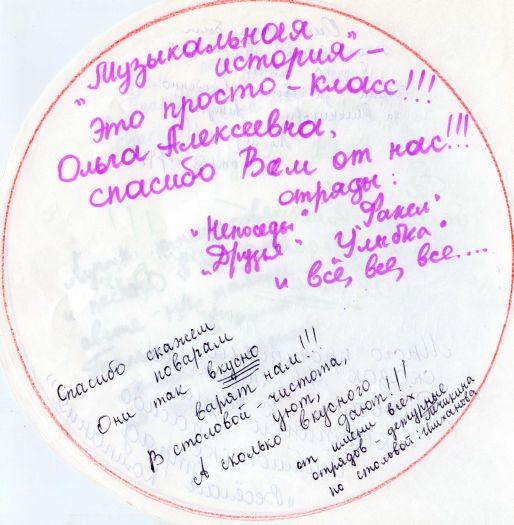 "Музыкальная
история" -
это просто - класс!!!
Ольга Алексеевна,
спасибо Вам от нас!!!
отряды:
"Непоседы" "Факел"
"Друзья" "Улыбка"
и все, все, все....
Спасибо скажем
поварам
Они так вкусно
варят нам!!!
В столовой - чистота,
уют,
А сколько вкусного
дают!!!
от имени всех
отрядов дежурные
по столовой: